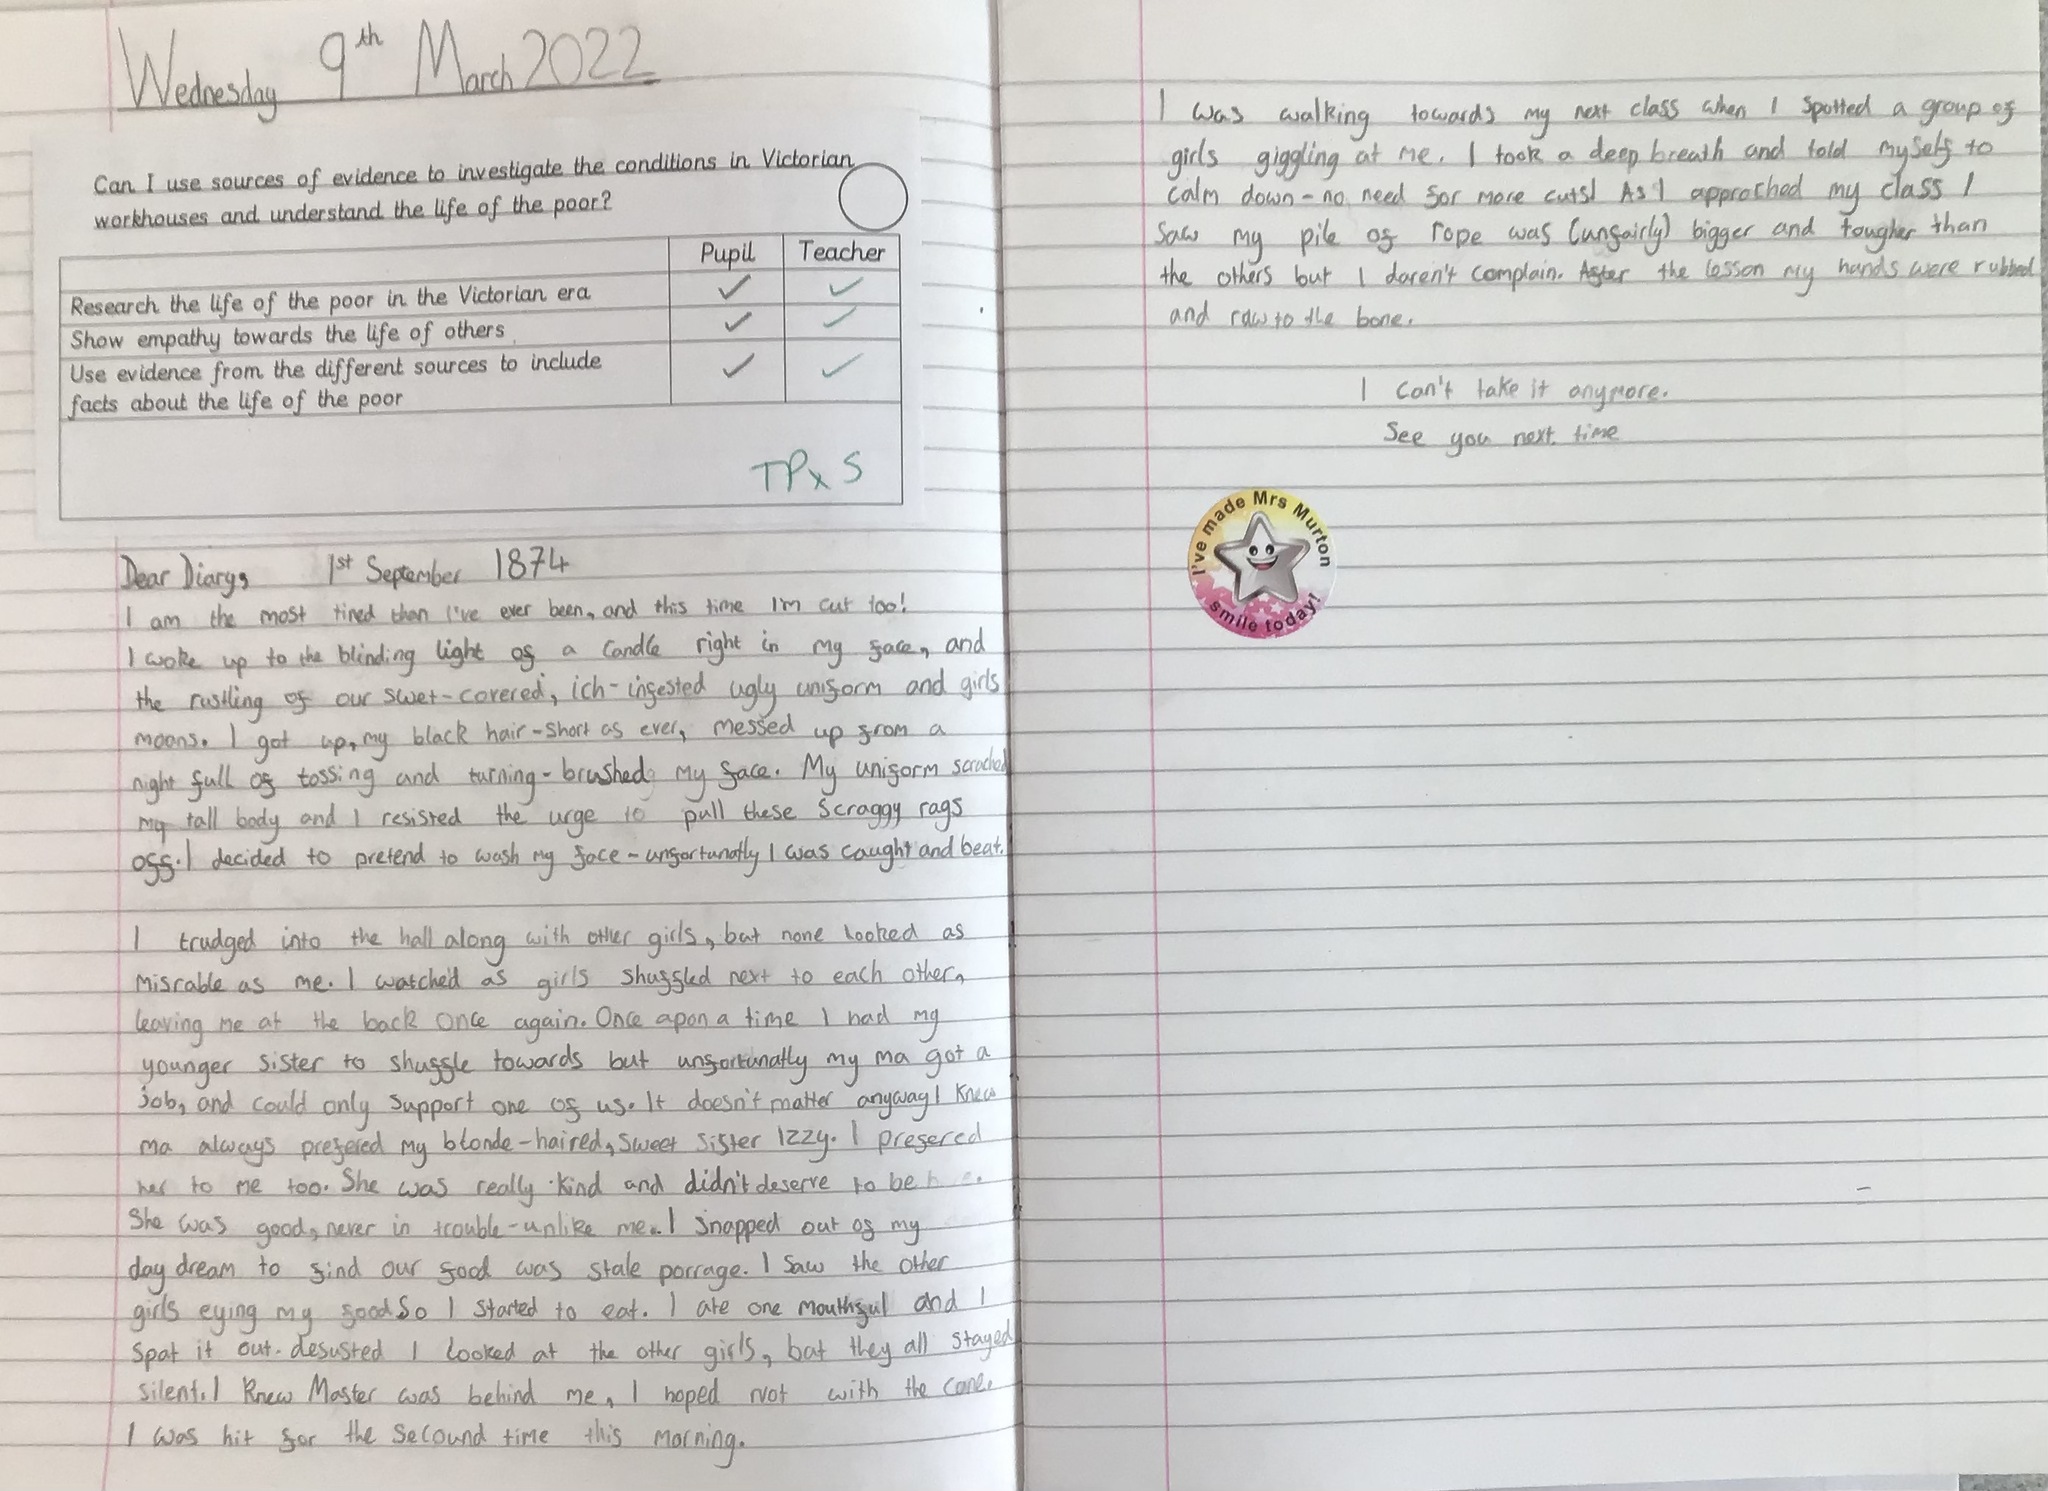 Wednesday 9th March 2022
Can I use sources of evidence to investigate the conditions in Victorian
workhouses and understand the life of the poor?
Pupil Teacher
Research the life of the poor in the Victorian era ✓ ✓
Show empathy towards the life of others ✓ ✓
Use evidence from the different sources to include ✓ ✓
facts about the life of the poor
TPx S
Dear Diary, 1st September 1874
I am the most tired than I've ever been, and this time I'm cut too!
I woke up to the blinding light of a candle right in my face, and
the rustling of our swet-covered, ich-infested ugly uniform and girls
moans. I got up, my black hair-short as ever, messed up from a
night full of tossing and turning-brushed my face. My uniform scrached
my tall body and I resisted the urge to pull these scraggy rags
off. I decided to pretend to wash my face - unfortunatly I was caught and beat.
I trudged into the hall along with other girls, but none looked as
misrable as me. I watched as girls shuffled next to each other,
leaving me at the back once again. Once apon a time I had my
younger sister to shuffle towards but unfortunatly my ma got a
job, and could only support one of us. It doesn't matter anyway! I knew
ma always prefered my blonde-haired, sweet sister Izzy. I prefered
her to me too. She was really kind and didn't deserve to be
She was good, never in trouble-unlike me. I snapped out of my
day dream to find our food was stale porrage. I saw the other
girls eying my food so I started to eat. I ate one mouthful and I
spat it out. desusted I looked at the other girls, but they all stayed
silent. I knew Master was behind me, I hoped not with the cane.
I was hit for the secound time this morning.
I was walking towards my next class when I spotted a group of
girls giggling at me. I took a deep breath and told myself to
calm down - no need for more cuts! As I approched my class I
saw my pile of rope was (unfairly) bigger and tougher than
the others but I daren't complain. After the lesson my hands were rubbed
and raw to the bone.
I can't take it anymore.
See you next time
I've made Mrs Murton
smile today!